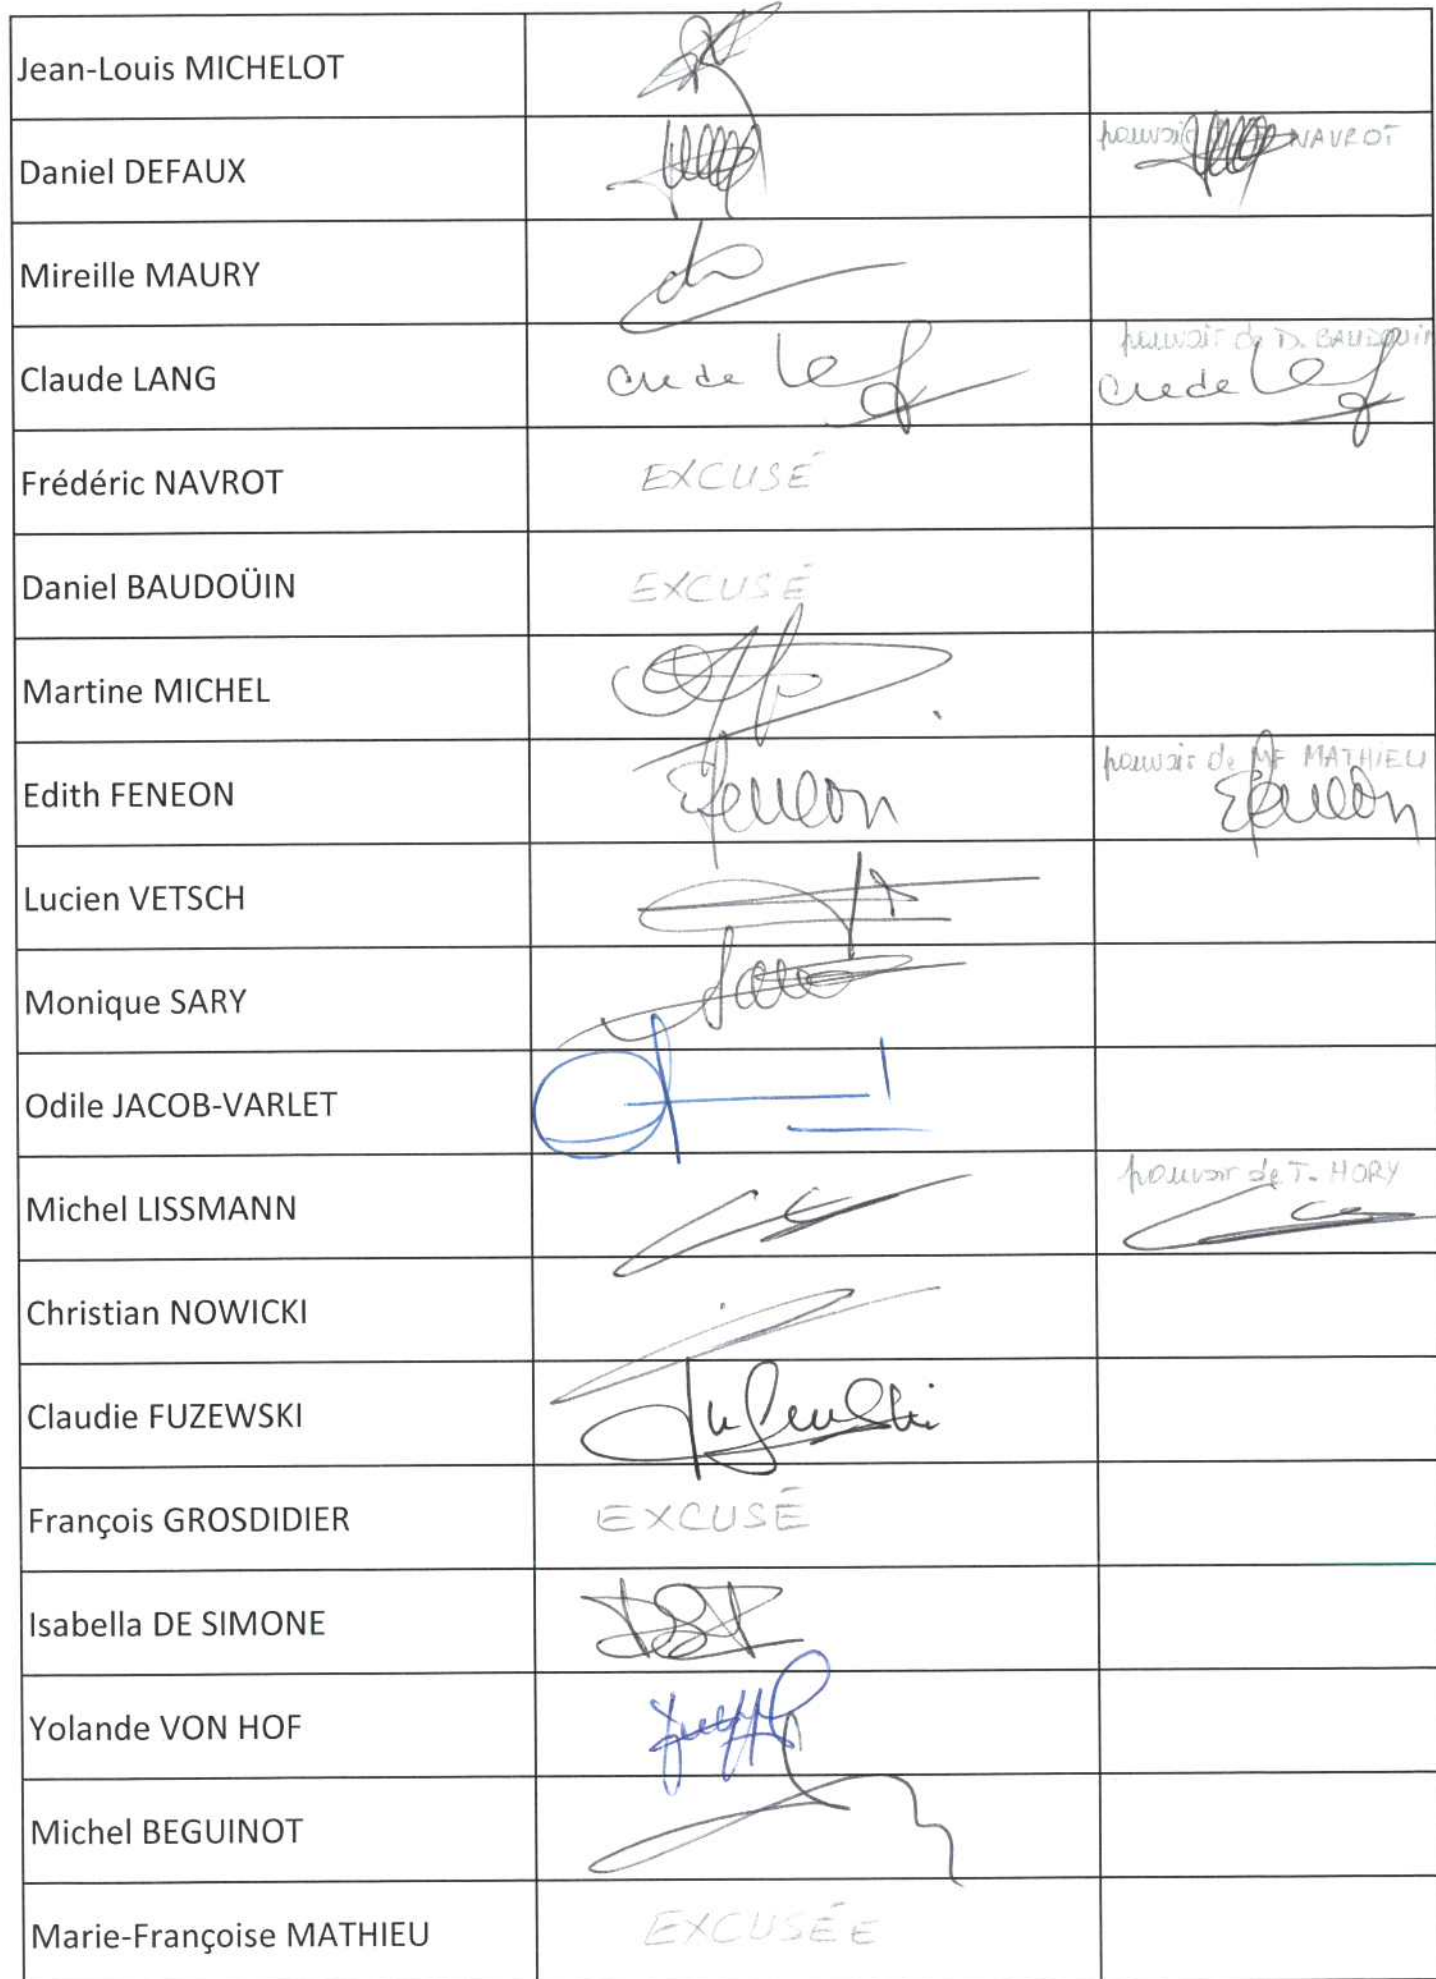 Jean-Louis MICHELOT
Daniel DEFAUX
pouvoir NAVROT
Mireille MAURY
Claude LANG
pouvoir de D. BAUDOUIN
Frédéric NAVROT
EXCUSÉ
Daniel BAUDOÜIN
EXCUSÉ
Martine MICHEL
Edith FENEON
Feneon
pouvoir de MF MATHIEU
EFeneon
Lucien VETSCH
Monique SARY
Odile JACOB-VARLET
Michel LISSMANN
pouvoir de T. HORY
Christian NOWICKI
Claudie FUZEWSKI
François GROSDIDIER
EXCUSÉ
Isabella DE SIMONE
Yolande VON HOF
Michel BEGUINOT
Marie-Françoise MATHIEU
EXCUSÉE